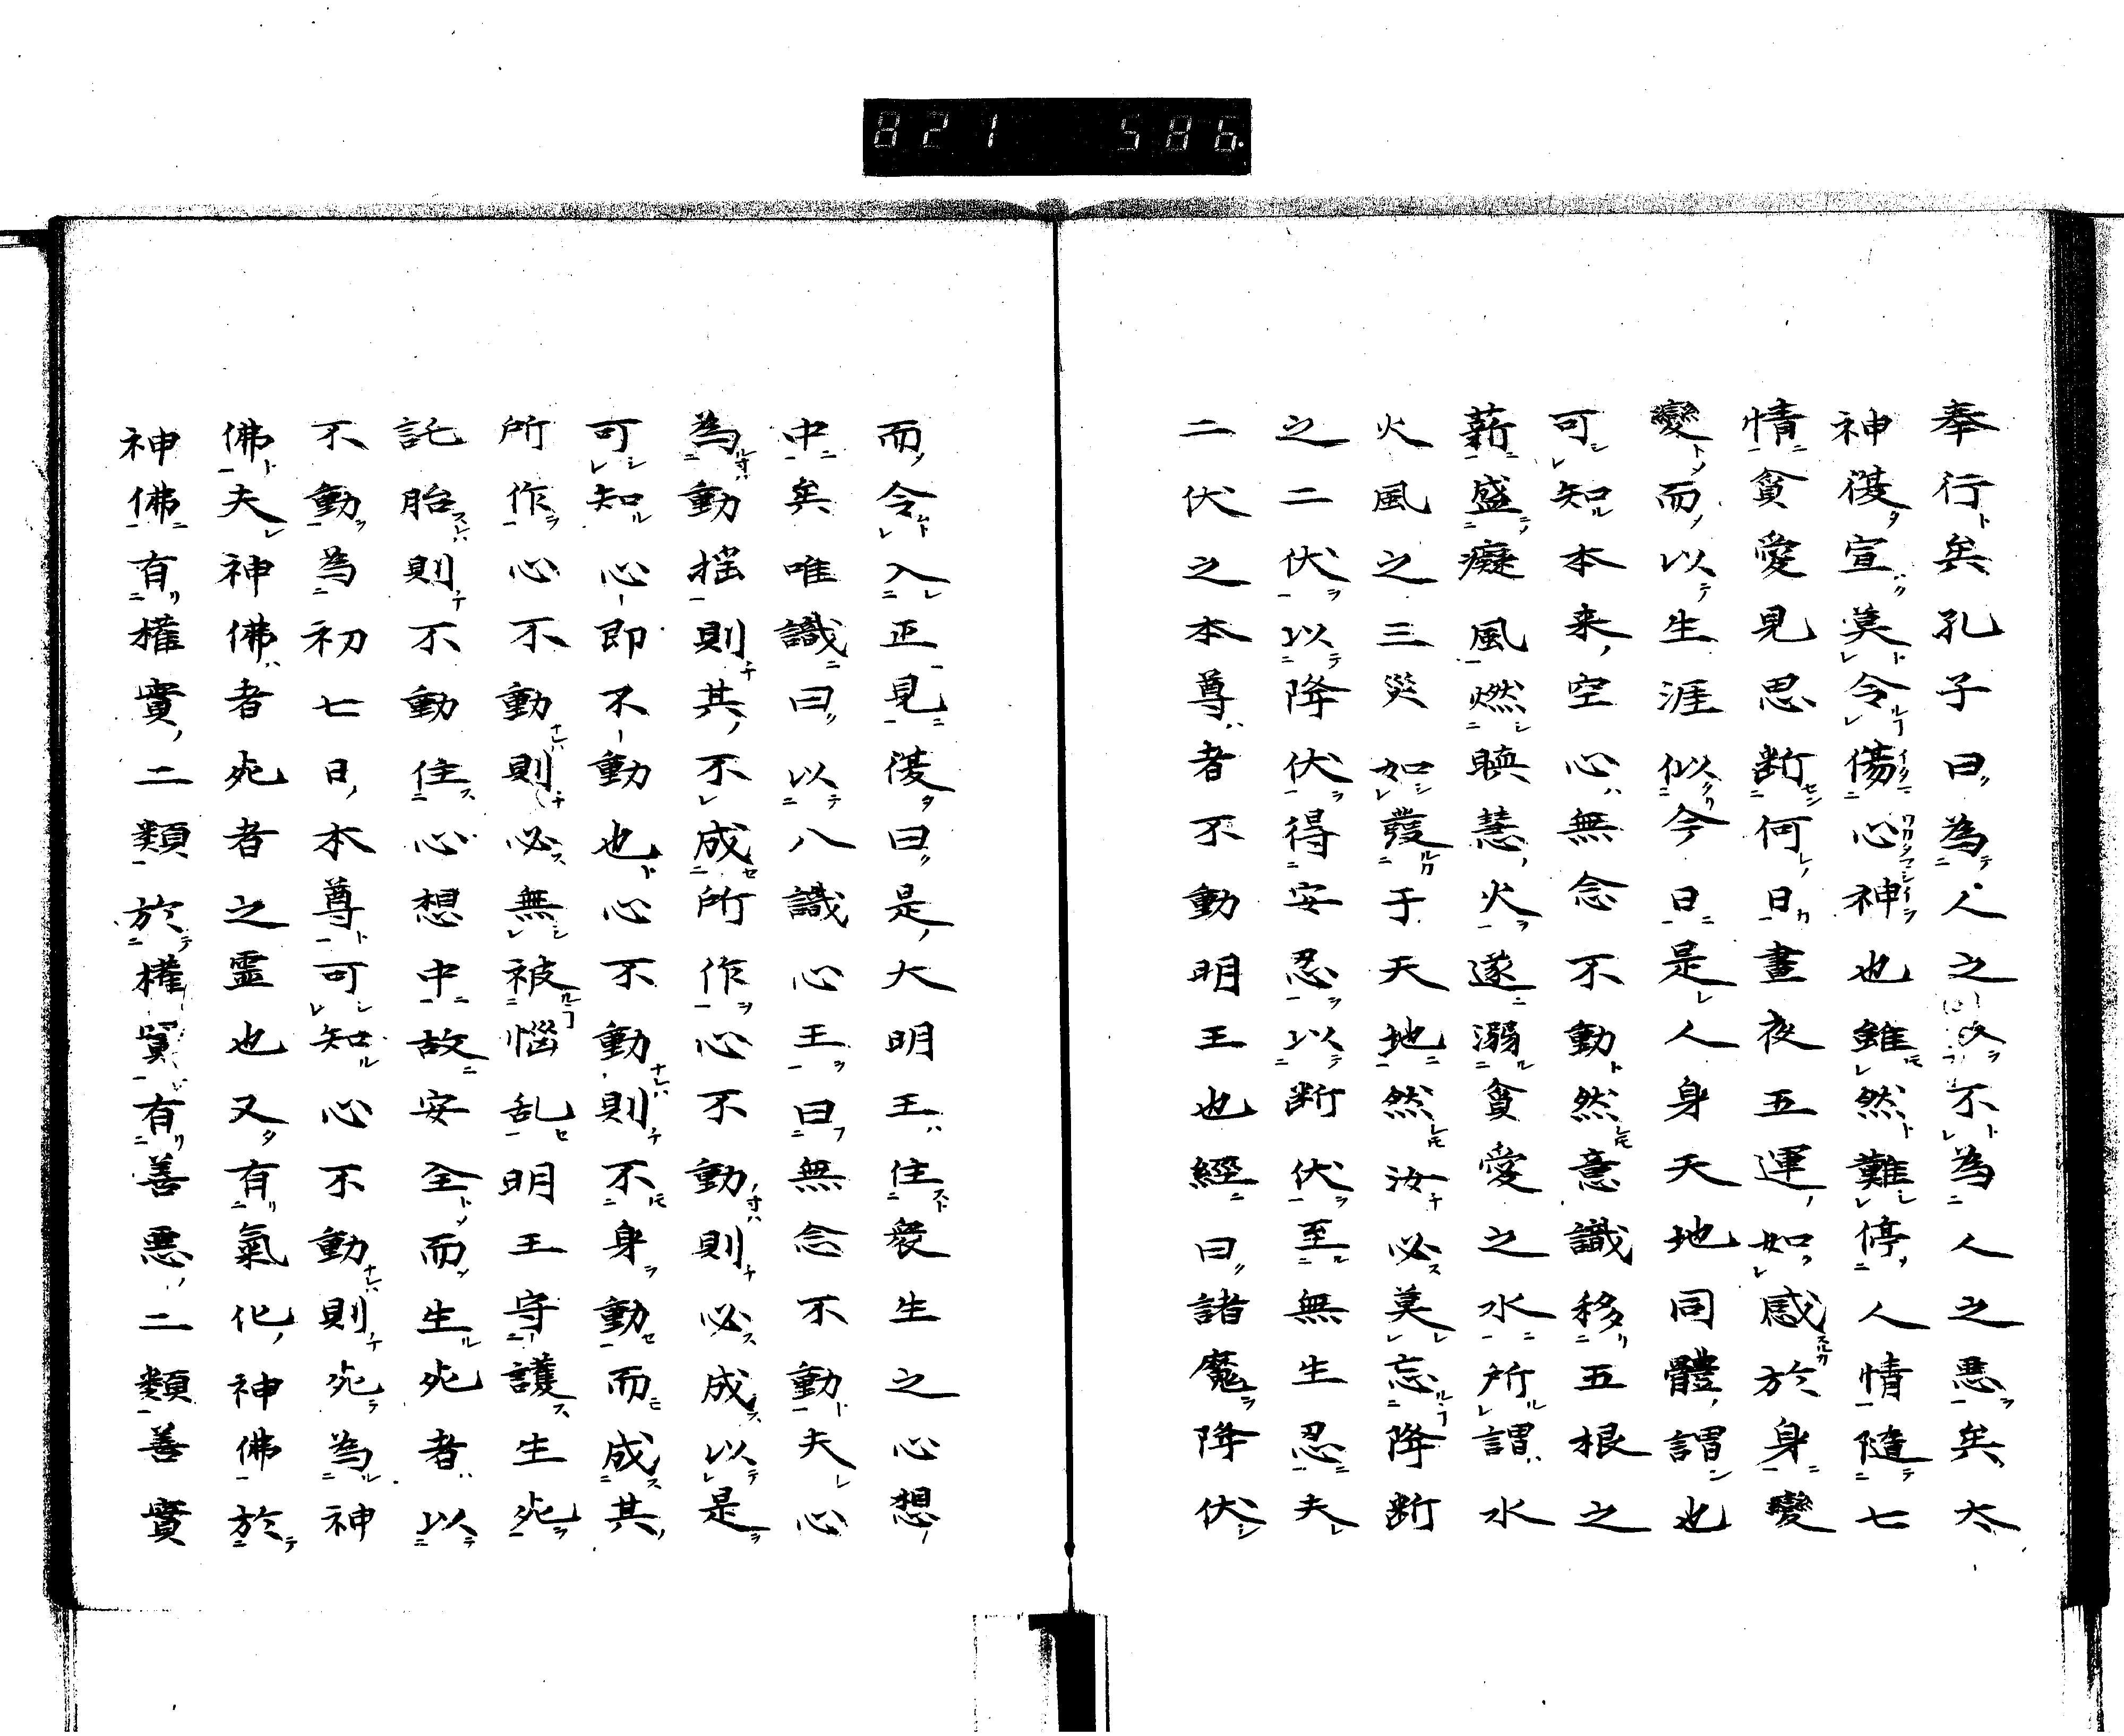 821 586.
奉行矣孔子曰為人之又不為人之悪矣太
神復宣莫令傷心神也雖然難停人情隨七
情貪愛見思断何日晝夜五運如感於身變
變而以生涯似今日是人身天地同體謂也
可知本来空心無念不動然意識移五根之
薪盛癡風燃瞋慧火遂溺貪愛之水所謂水
火風之三災如發于天地然汝必莫忘降断
之二伏以降伏得安忍以断伏至無生忍夫
二伏之本尊者不動明王也經曰諸魔降伏
而令入正見復曰是大明王住衆生之心想
中矣唯識曰以八識心王曰無念不動夫心
為動揺則其不成所作心不動則必成以是
可知心即不動也心不動則不身動而成其
所作心不動則必無被惱乱明王守護生死
託胎則不動住心想中故安全而生死者以
不動為初七日本尊可知心不動則死為神
佛夫神佛者死者之霊也又有氣化神佛於
神佛有權實二類於權實有善悪二類善實